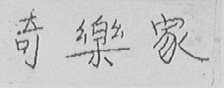 奇樂家